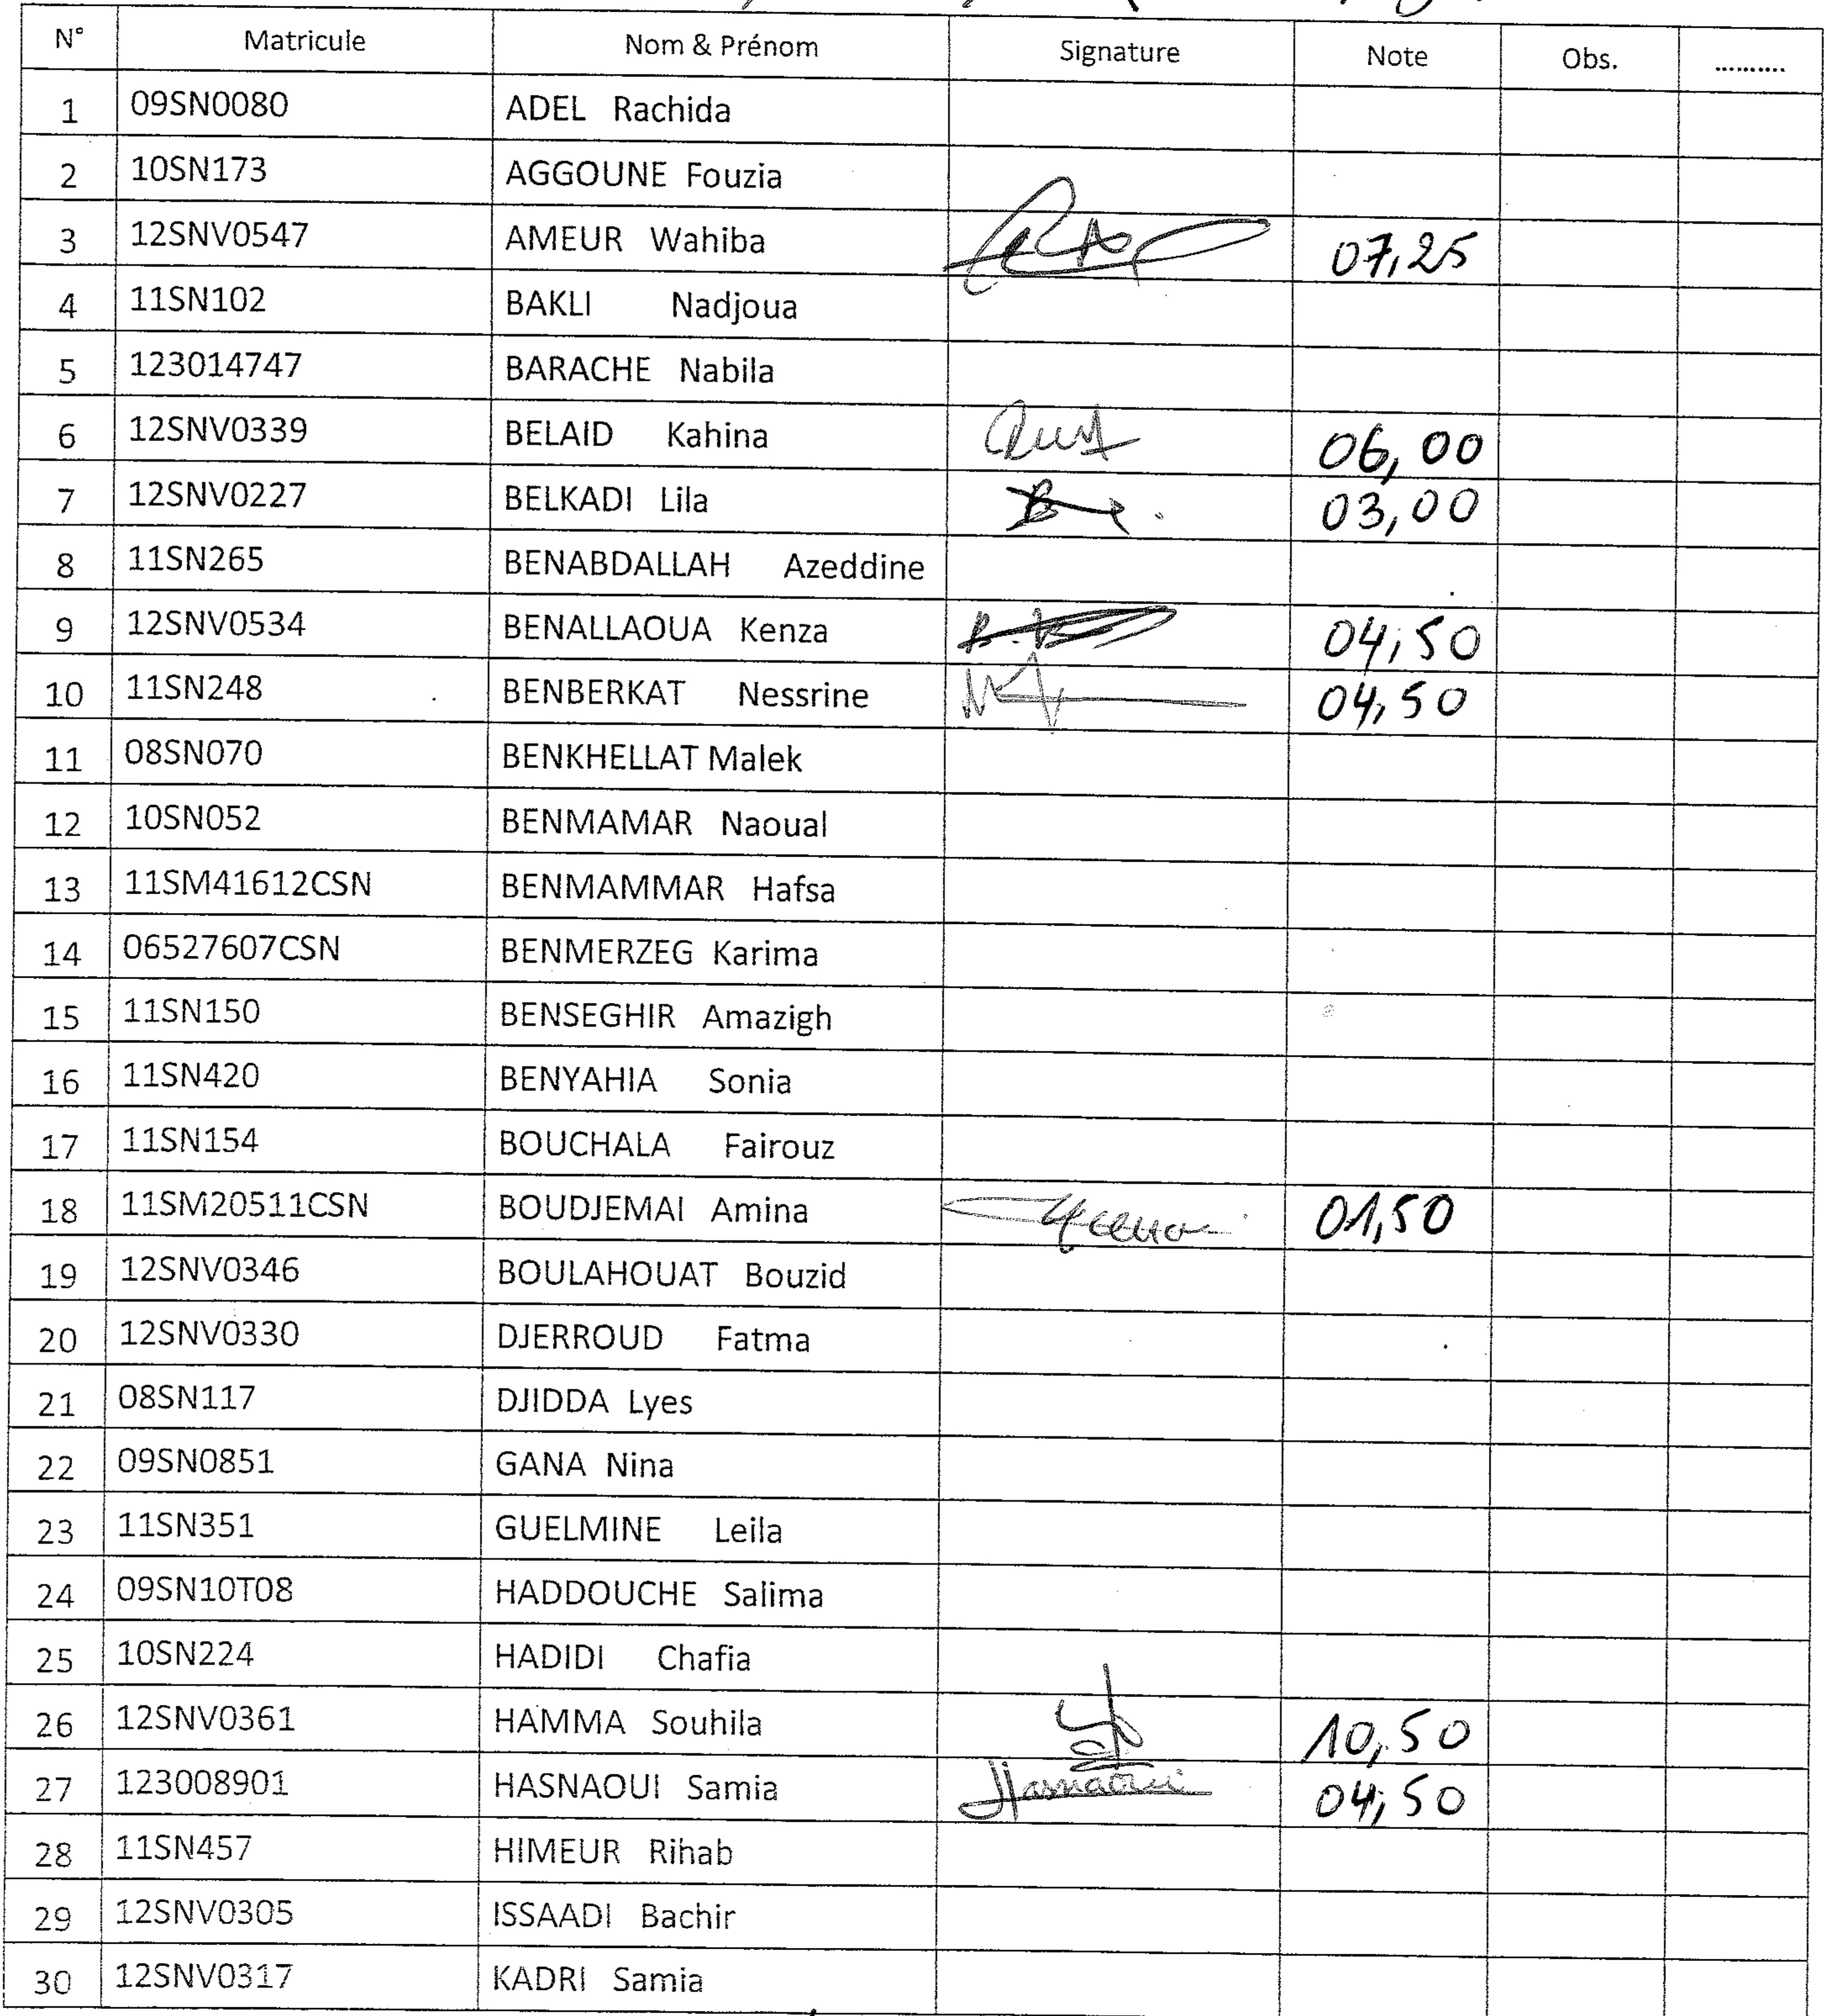 N° Matricule Nom & Prénom Signature Note Obs. ..........
1 09SN0080 ADEL Rachida
2 10SN173 AGGOUNE Fouzia
3 12SNV0547 AMEUR Wahiba 07,25
4 11SN102 BAKLI Nadjoua
5 123014747 BARACHE Nabila
6 12SNV0339 BELAID Kahina 06,00
7 12SNV0227 BELKADI Lila 03,00
8 11SN265 BENABDALLAH Azeddine
9 12SNV0534 BENALLAOUA Kenza 04,50
10 11SN248 BENBERKAT Nessrine 04,50
11 08SN070 BENKHELLAT Malek
12 10SN052 BENMAMAR Naoual
13 11SM41612CSN BENMAMMAR Hafsa
14 06527607CSN BENMERZEG Karima
15 11SN150 BENSEGHIR Amazigh
16 11SN420 BENYAHIA Sonia
17 11SN154 BOUCHALA Fairouz
18 11SM20511CSN BOUDJEMAI Amina 01,50
19 12SNV0346 BOULAHOUAT Bouzid
20 12SNV0330 DJERROUD Fatma
21 08SN117 DJIDDA Lyes
22 09SN0851 GANA Nina
23 11SN351 GUELMINE Leila
24 09SN10T08 HADDOUCHE Salima
25 10SN224 HADIDI Chafia
26 12SNV0361 HAMMA Souhila 10,50
27 123008901 HASNAOUI Samia Hasnaoui 04,50
28 11SN457 HIMEUR Rihab
29 12SNV0305 ISSAADI Bachir
30 12SNV0317 KADRI Samia